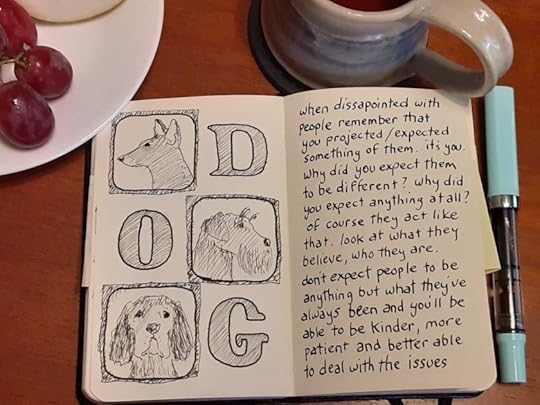 D
O
G
when dissapointed with
people remember that
you projected/expected
something of them. it's you.
why did you expect them
to be different? why did
you expect anything at all?
of course they act like
that. look at what they
believe, who they are.
don't expect people to be
anything but what they've
always been and you'll be
able to be kinder, more
patient and better able
to deal with the issues